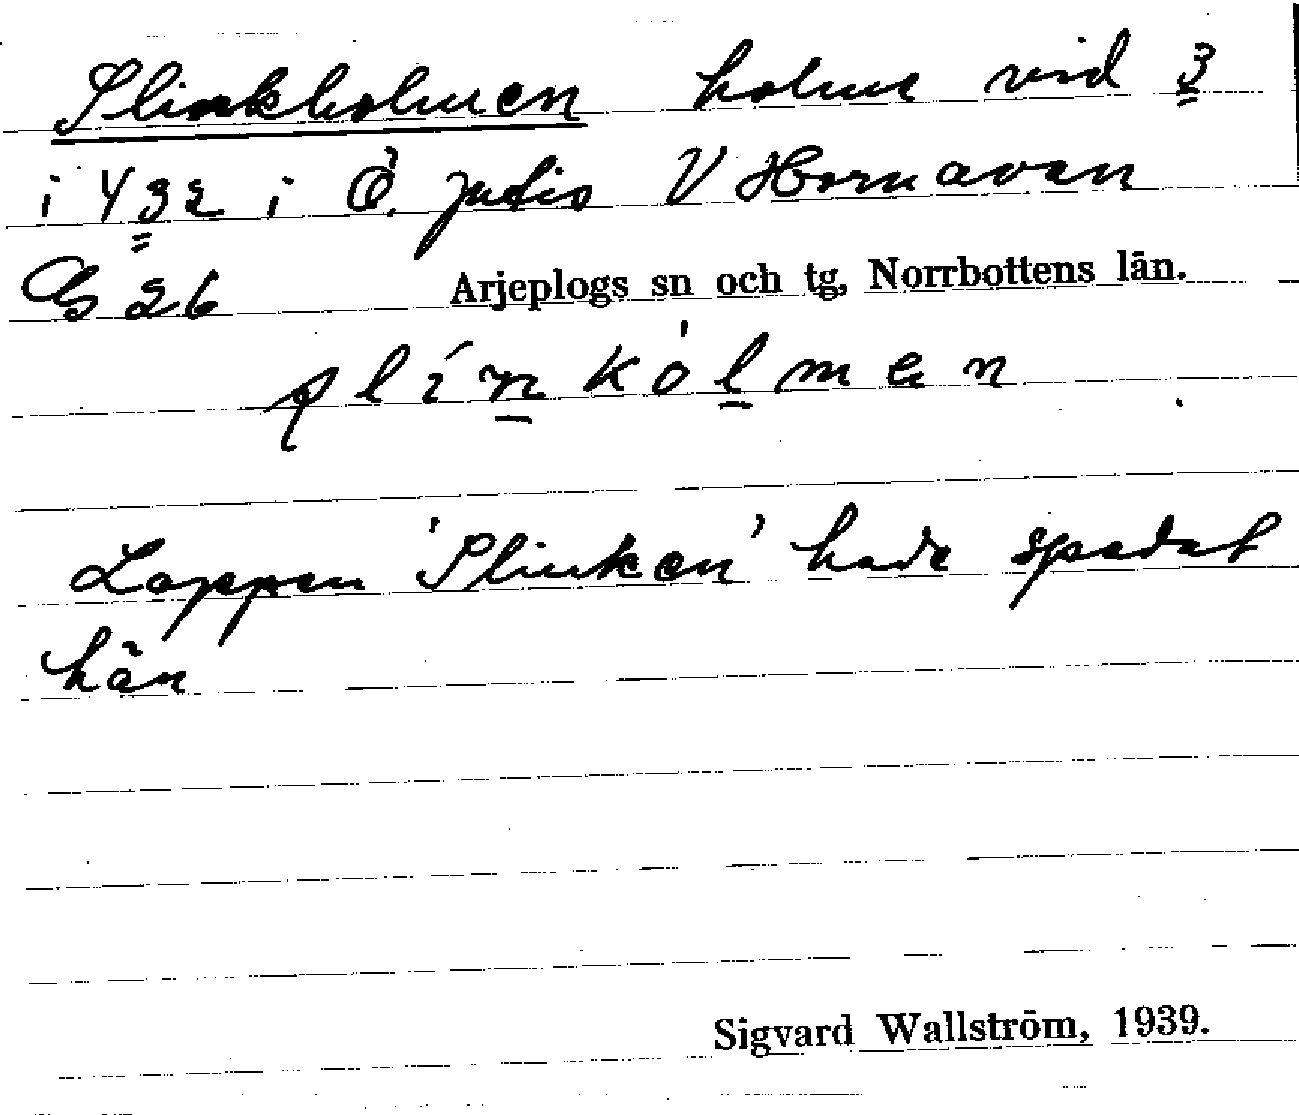 Slinkholmen holme vid 3
i 432 i Ö. Jutis V Hornavan
GS 26 Arjeplogs sn och tg, Norrbottens län.
slínkòlmen
Lappen 'Slinken' hade spadat
hän
Sigvard Wallström, 1939.